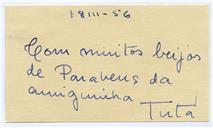 18-III-56
Com muitos beijos
de Parabens da
amiguinha
Tutá